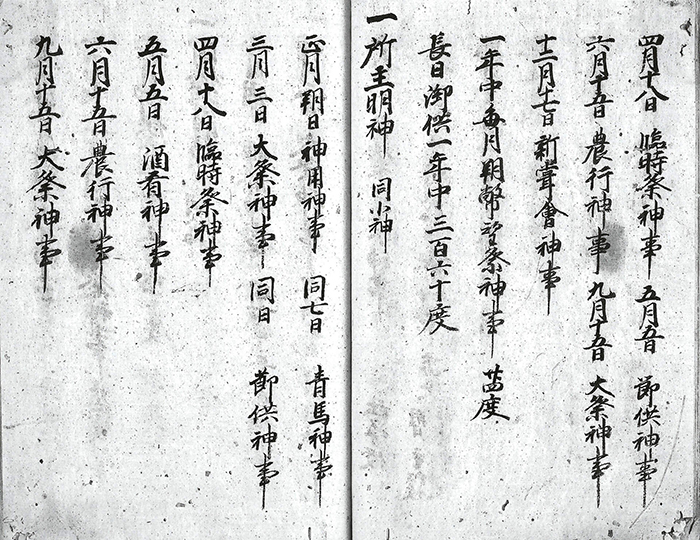 四月十八日 臨時祭神事 五月五日 節供神事
六月十五日 農行神事 九月十五日 大祭神事
十二月十七日 新嘗會神事
一年中毎月朔幣望祭神事 廿四度
長日御供一年中三百六十度
一所主明神 同小神
正月朔日神用神事 同七日 青馬神事
三月三日 大祭神事 同日 節供神事
四月十八日 臨時祭神事
五月五日 酒肴神事
六月十五日 農行神事
九月十五日 大祭神事